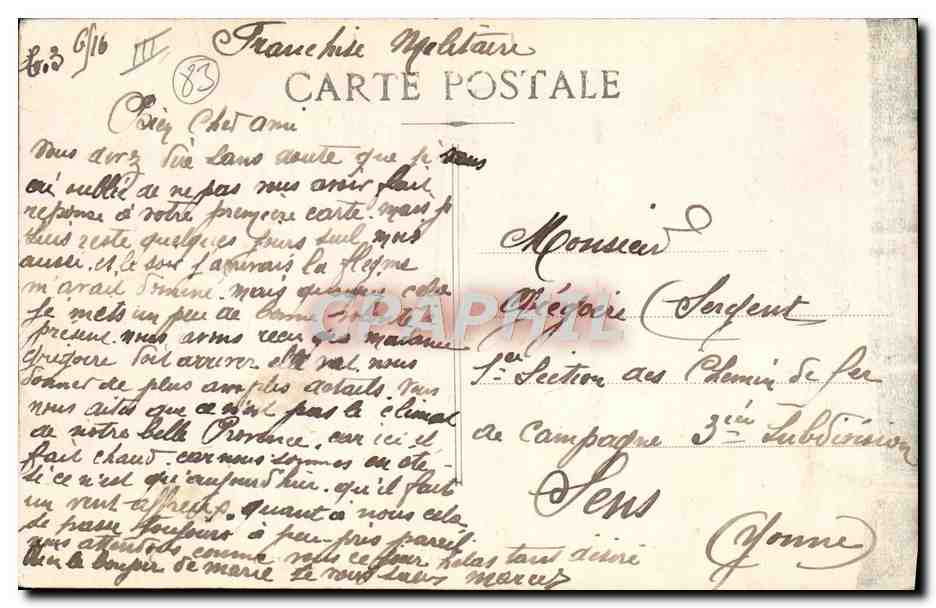 6/16
III
83
Franchise Militaire
CARTE POSTALE
Bien cher ami
Vous avez dire sans doute que je vous
ai oublié de ne pas vous avoir fait
reponse à votre premiere carte. mais je
suis resté quelques jours seul, mais
aussi, et le soir j'
m'avait dominé. mais quand cela
je mets un peu de bonne
present. nous avons reçu que madame
Grégoire doit arriver. elle va nous
donner de plus amples details. Vous
nous dites que ce n'est pas le climat
de notre belle Provence. car ici il
fait chaud. car nous sommes en été
si ce n'est qu'aujourd'hui qu'il fait
un vent affreux. quant à nous cela
se passe toujours à peu pris pareil.
nous attendons comme vous ce jour hélas tant désiré
Bien le bonjour de marie
CPAPHIL
Monsieur
Grégoire (Sergent
1er Section des Chemin de fer
de Campagne 3ieè Subdivision
Sens
(Yonne)